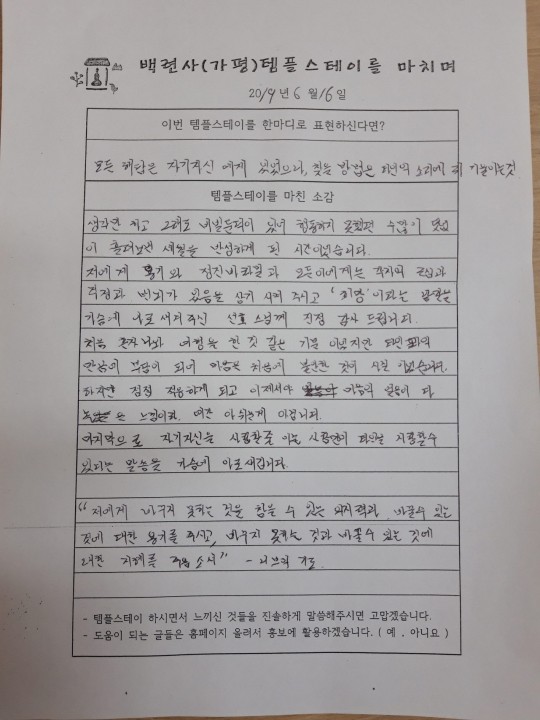 백련사(가평)템플스테이를 마치며
2019년 6월 16일
이번 템플스테이를 한마디로 표현하신다면?
모든 해답은 자기자신에게 있었으나, 찾을 방법은 내면의 소리에 귀 기울이는것
템플스테이를 마친 소감
생각만 하고 그래도 버틸만하 있어 행동하지 못했던 수많이
이 흘려보낸 세월을 반성하게 된 시간이었습니다.
저에게 용기와 정진바라밀과 모든이에게는 각자의 근심과
걱정과 번뇌가 있음을 상기 시켜 주시고 '희망'이라는 말을
가슴에 바로 새겨주신 선호 스님께 진정 감사 드립니다.
처음 혼자 여행을 한 것 같은 기분이었지만
만남에 부담이 되어 처음에 불안한 것이 사실 이었습니다.
하지만 점점 적응하게 되고 이제서야 마음의 다
은 느낌이라, 약간 아쉽게 마칩니다.
마지막으로 자기자신을 사랑할줄 아는 사람만이 타인을 사랑할수
있다는 말씀을 가슴에 아로새깁니다.
"저에게 바꾸지 못하는 것을 참을 수 있는 인내력과, 바꿀수 있는
것에 대한 용기를 주시고, 바꾸지 못하는 것과 바꿀수 있는 것에
대한 지혜를 주옵소서" - 니부어 기도.
- 템플스테이 하시면서 느끼신 것들을 진솔하게 말씀해주시면 고맙겠습니다.
- 도움이 되는 글들은 홈페이지 올려서 홍보에 활용하겠습니다. ( 예 , 아니요 )